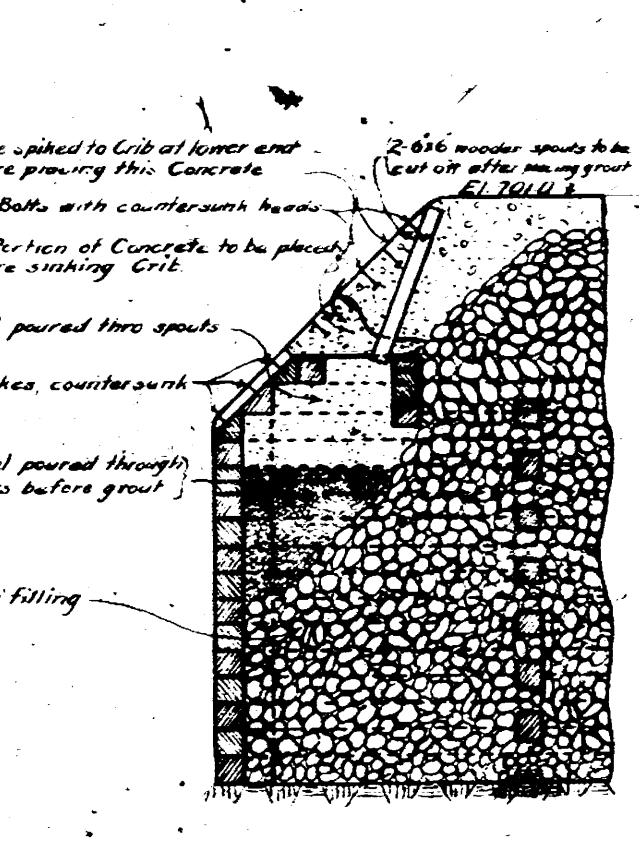 e spiked to Crib at lower end
re placing this Concrete
Bolts with countersunk heads
Portion of Concrete to be placed
re sinking Crib.
poured thro spouts
kes, countersunk
l poured through
s before grout
filling
2-6x6 wooden spouts to be
cut off after placing grout
El.